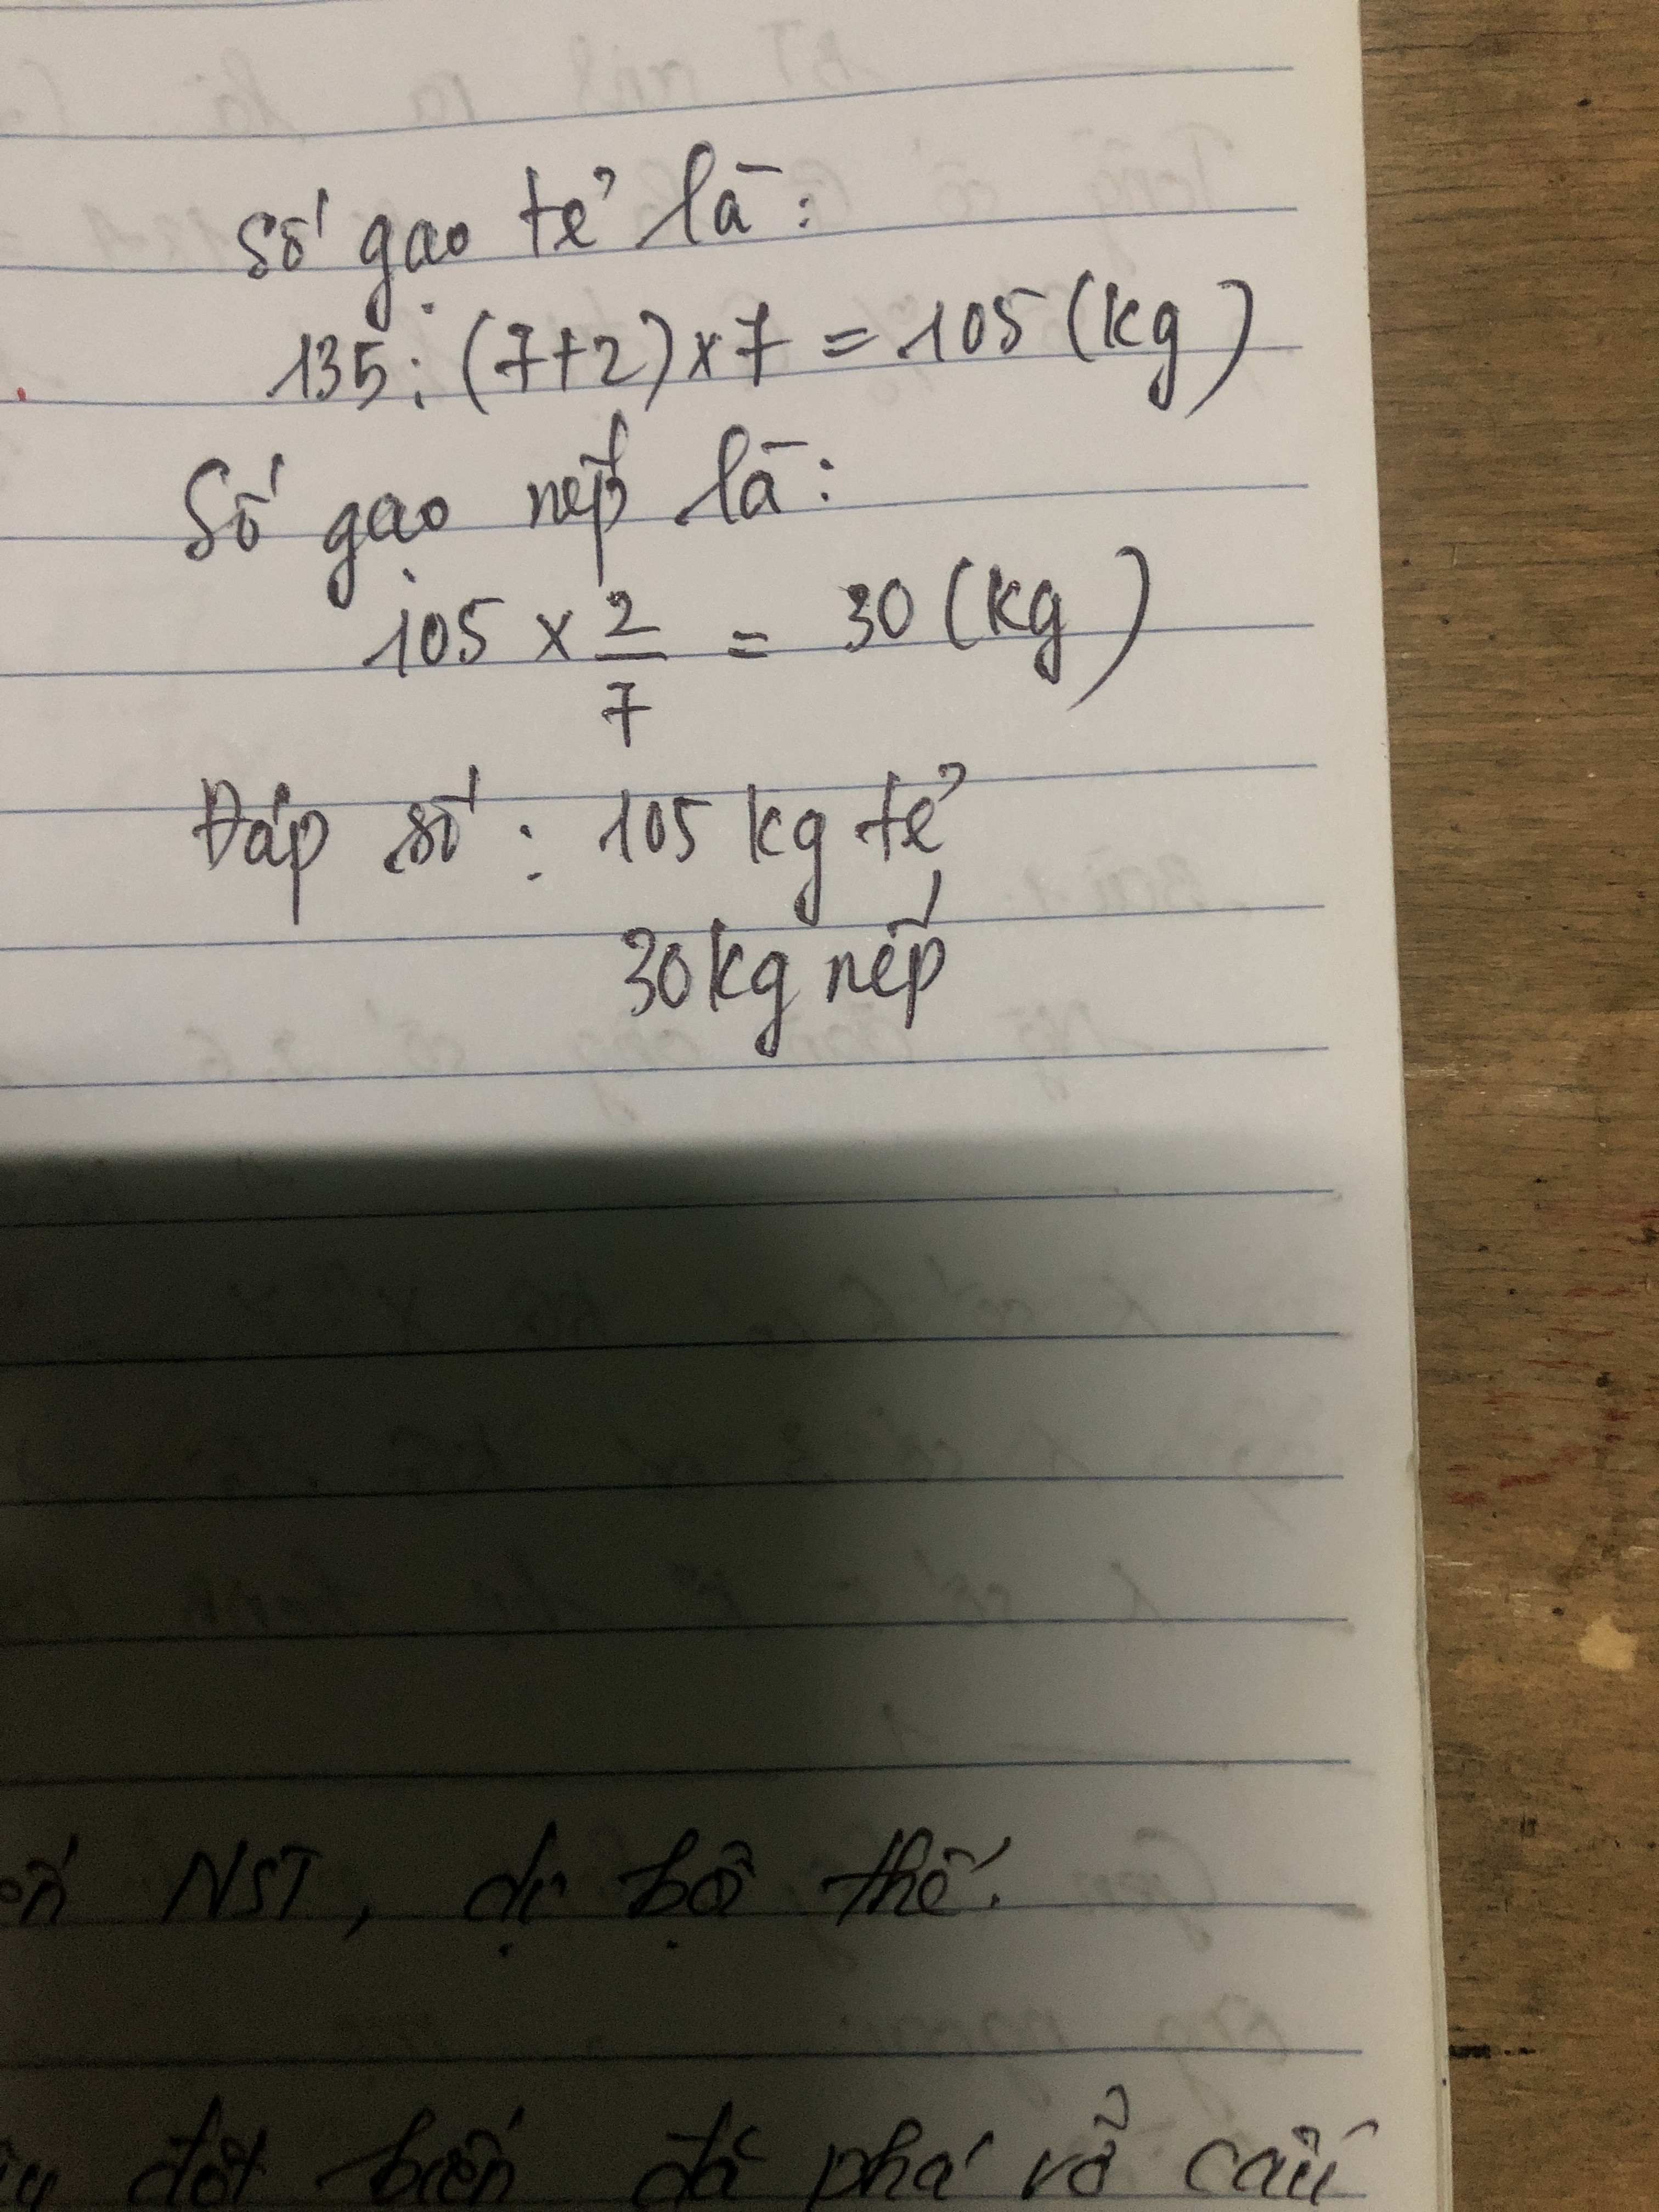 Số gạo tẻ là:
135 : (7+2) x 7 = 105 (kg)
Số gạo nếp là:
105 x 2/7 = 30 (kg)
Đáp số : 105 kg tẻ
30 kg nếp
NST, dị bội thể.
đột biến đã phá vỡ cấu